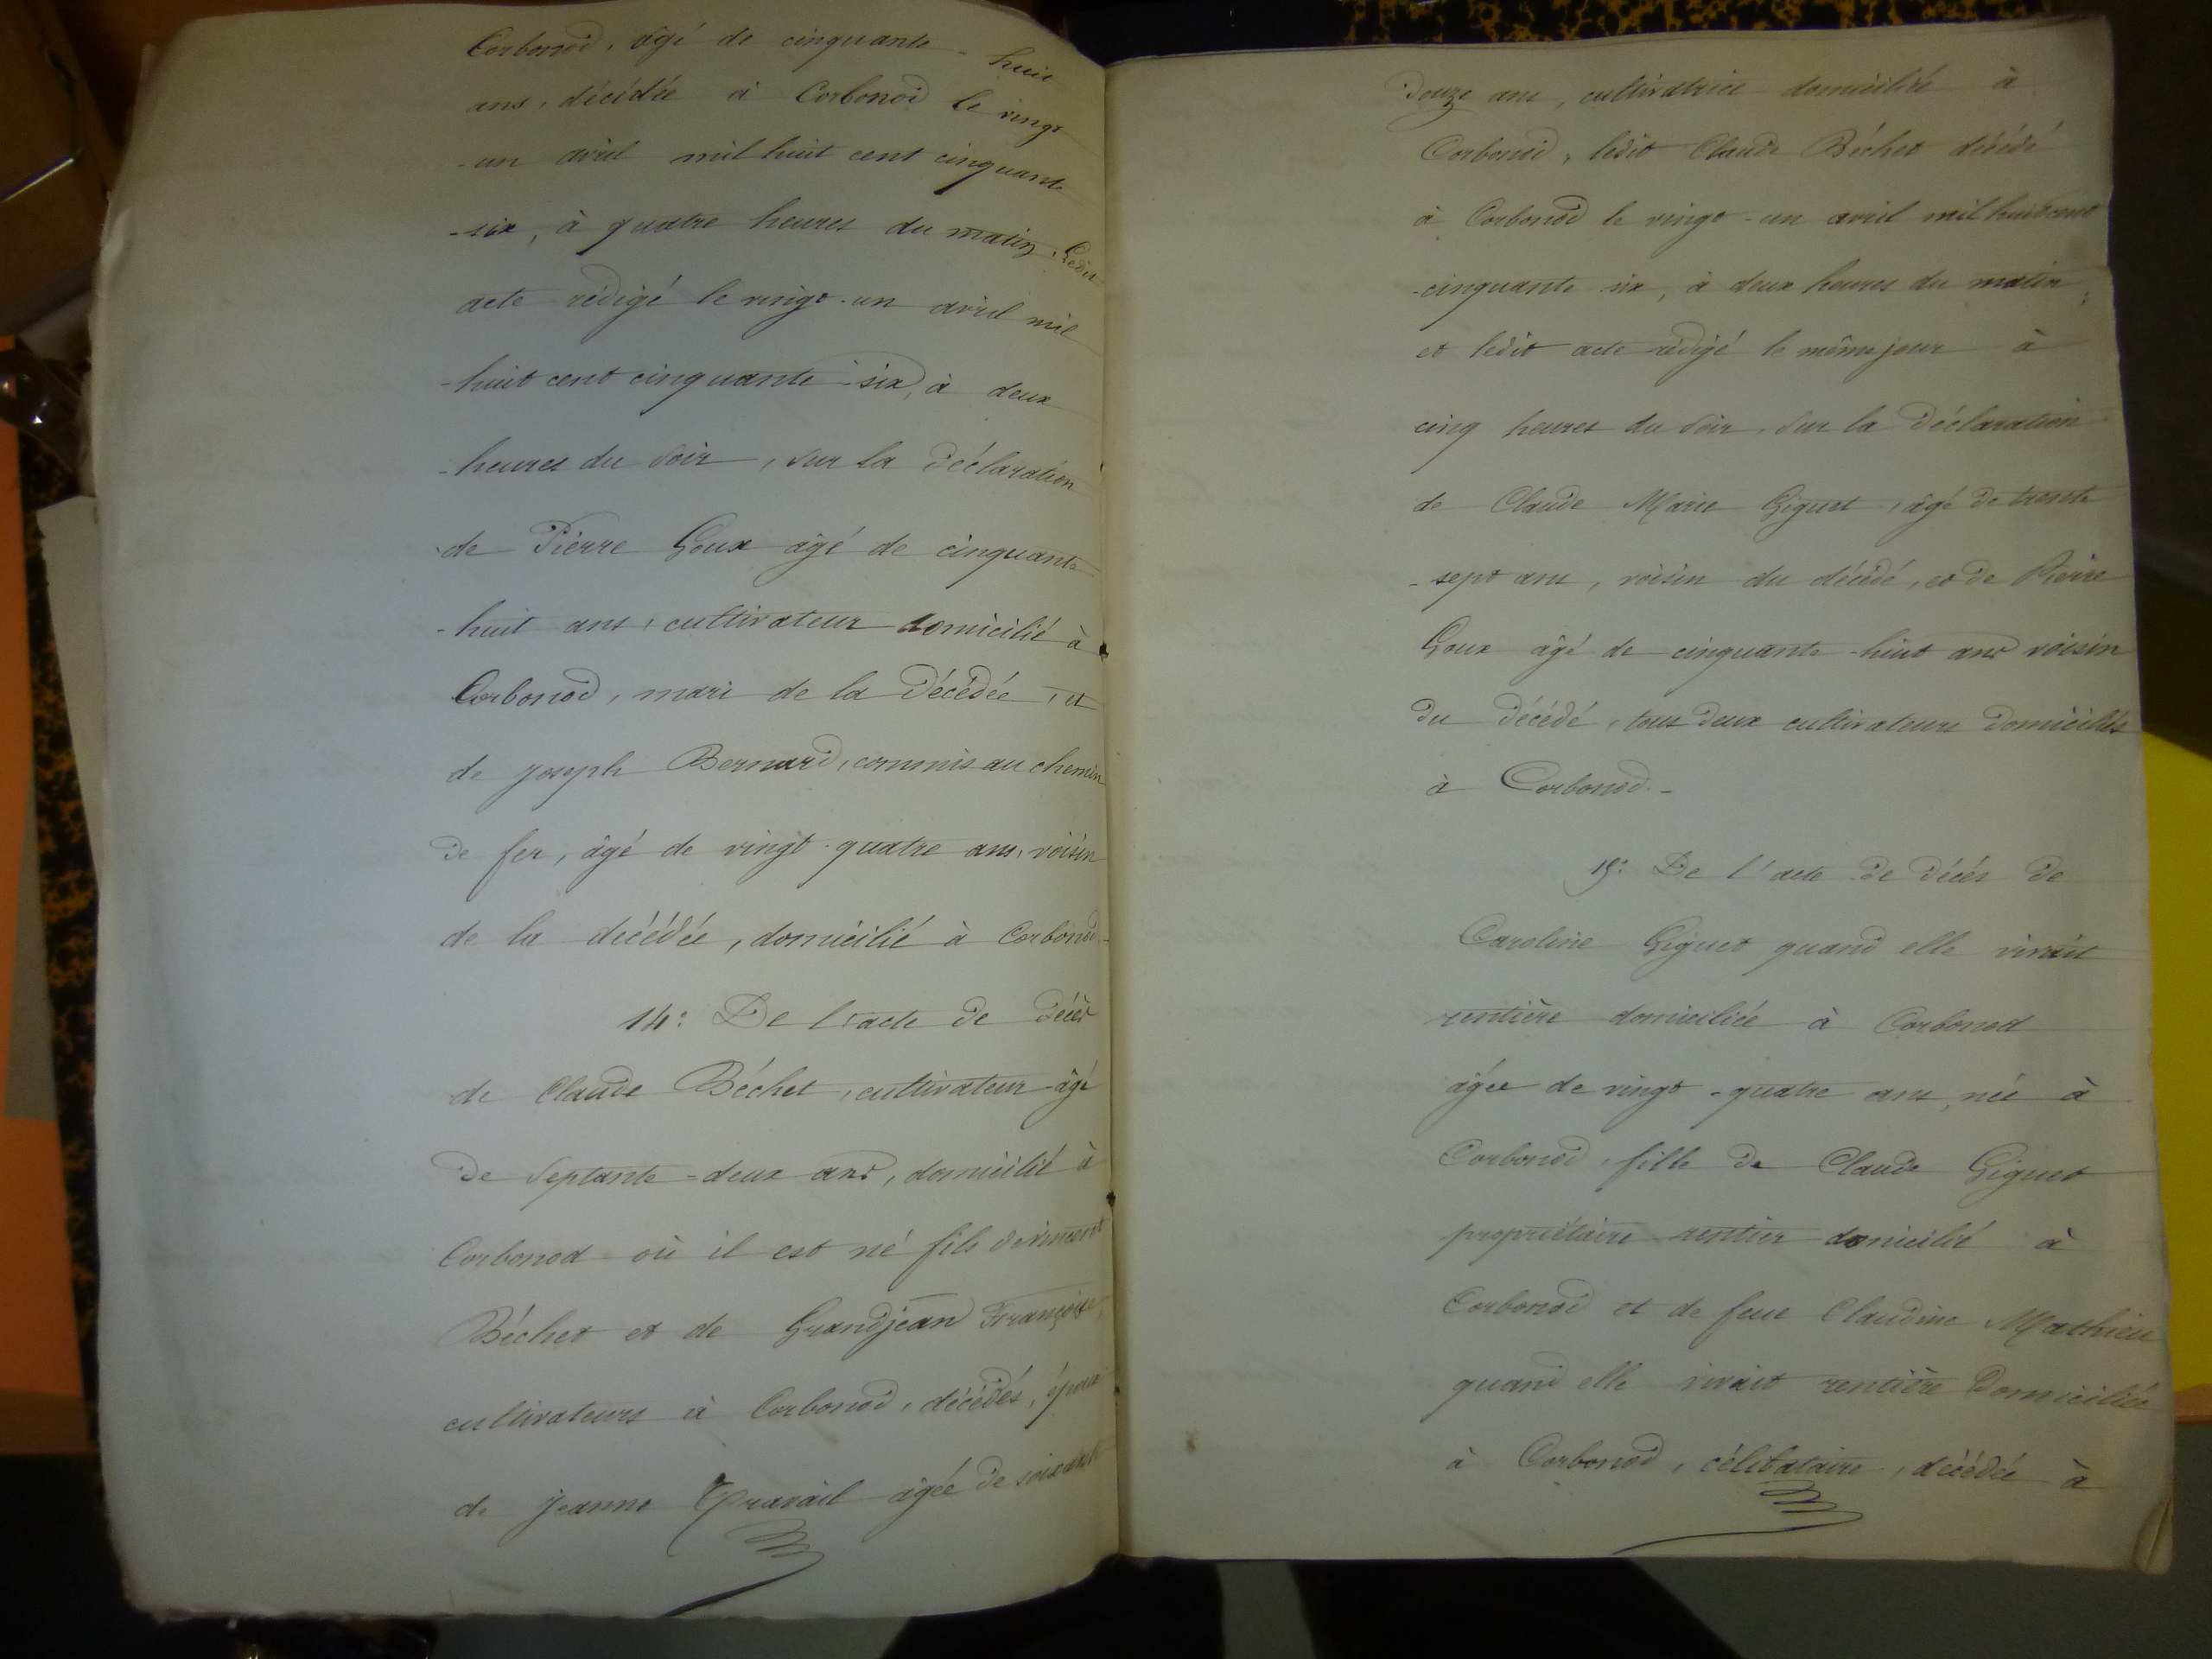 Corbonod, âgé de cinquante-huit
ans, décédée à Corbonod le vingt
-un avril mil huit cent cinquante
-six, à quatre heures du matin, Ledit
acte rédigé le vingt-un avril mil
-huit cent cinquante-six, à deux
-heures du soir, sur la déclaration
de Pierre Goux âgé de cinquante
-huit ans, cultivateur domicilié à
Corbonod, mari de la décédée, et
de joseph Bernard, commis au chemin
de fer, âgé de vingt-quatre ans, voisin
de la décédée, domicilié à Corbonod.
14° De l'acte de décès
de Claude Béchet, cultivateur âgé
de septante-deux ans, domicilié à
Corbonod où il est né fils de vincent
Béchet et de Grandjean Françoise,
cultivateurs à Corbonod, décédés, époux
de jeanne âgée de soixante
douze ans, cultivatrice domiciliée à
Corbonod, ledit Claude Béchet décédé
à Corbonod le vingt-un avril mil huit cent
-cinquante-six, à deux heures du matin;
et ledit acte rédigé le même jour à
cinq heures du soir, sur la déclaration
de Claude Marie Giguet, âgé de trente
-sept ans, voisin du décédé, et de Pierre
Goux âgé de cinquante-huit ans voisin
du décédé, tous deux cultivateurs domiciliés
à Corbonod.-
15° De l'acte de décès de
Caroline Giguet quand elle vivait
rentière domiciliée à Corbonod
âgée de vingt-quatre ans, née à
Corbonod, fille de Claude Giguet
propriétaire rentier domicilié à
Corbonod et de feue Claudine Mathieu
quand elle vivait rentière domiciliée
à Corbonod, célibataire, décédée à